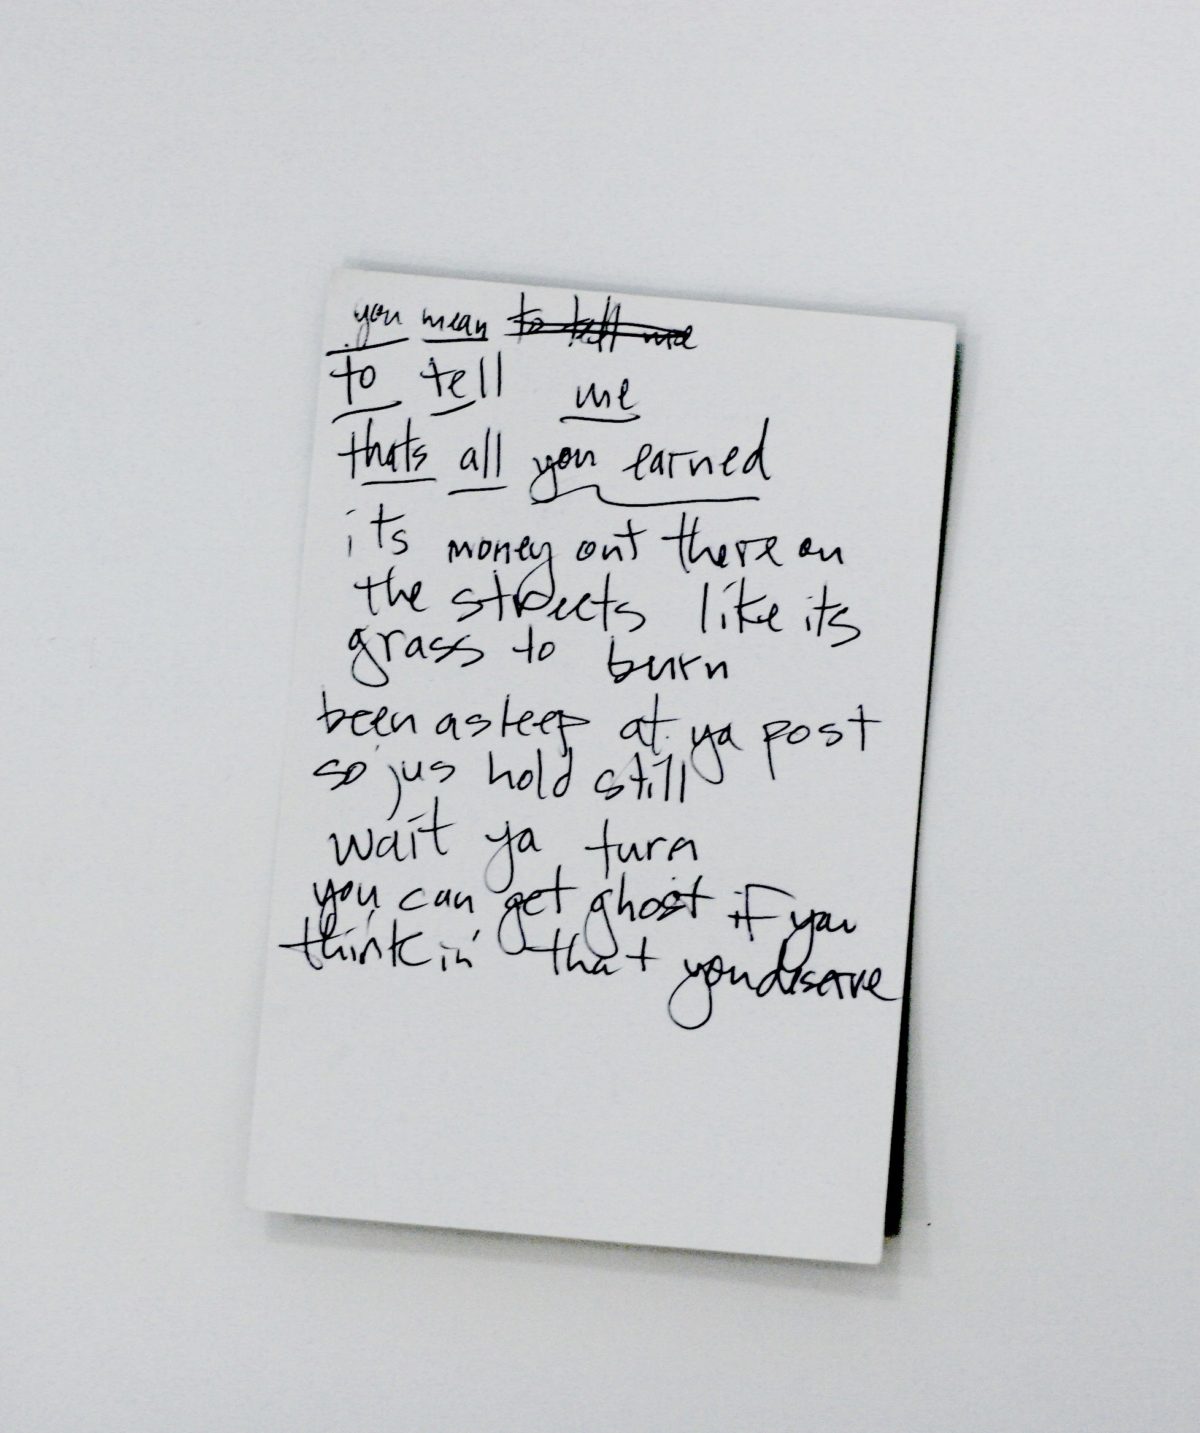 you mean to tell me
to tell me
thats all you earned
its money out there on
the streets like its
grass to burn
been asleep at ya post
so jus hold still
wait ya turn
you can get ghost if you
thinkin' that you deserve